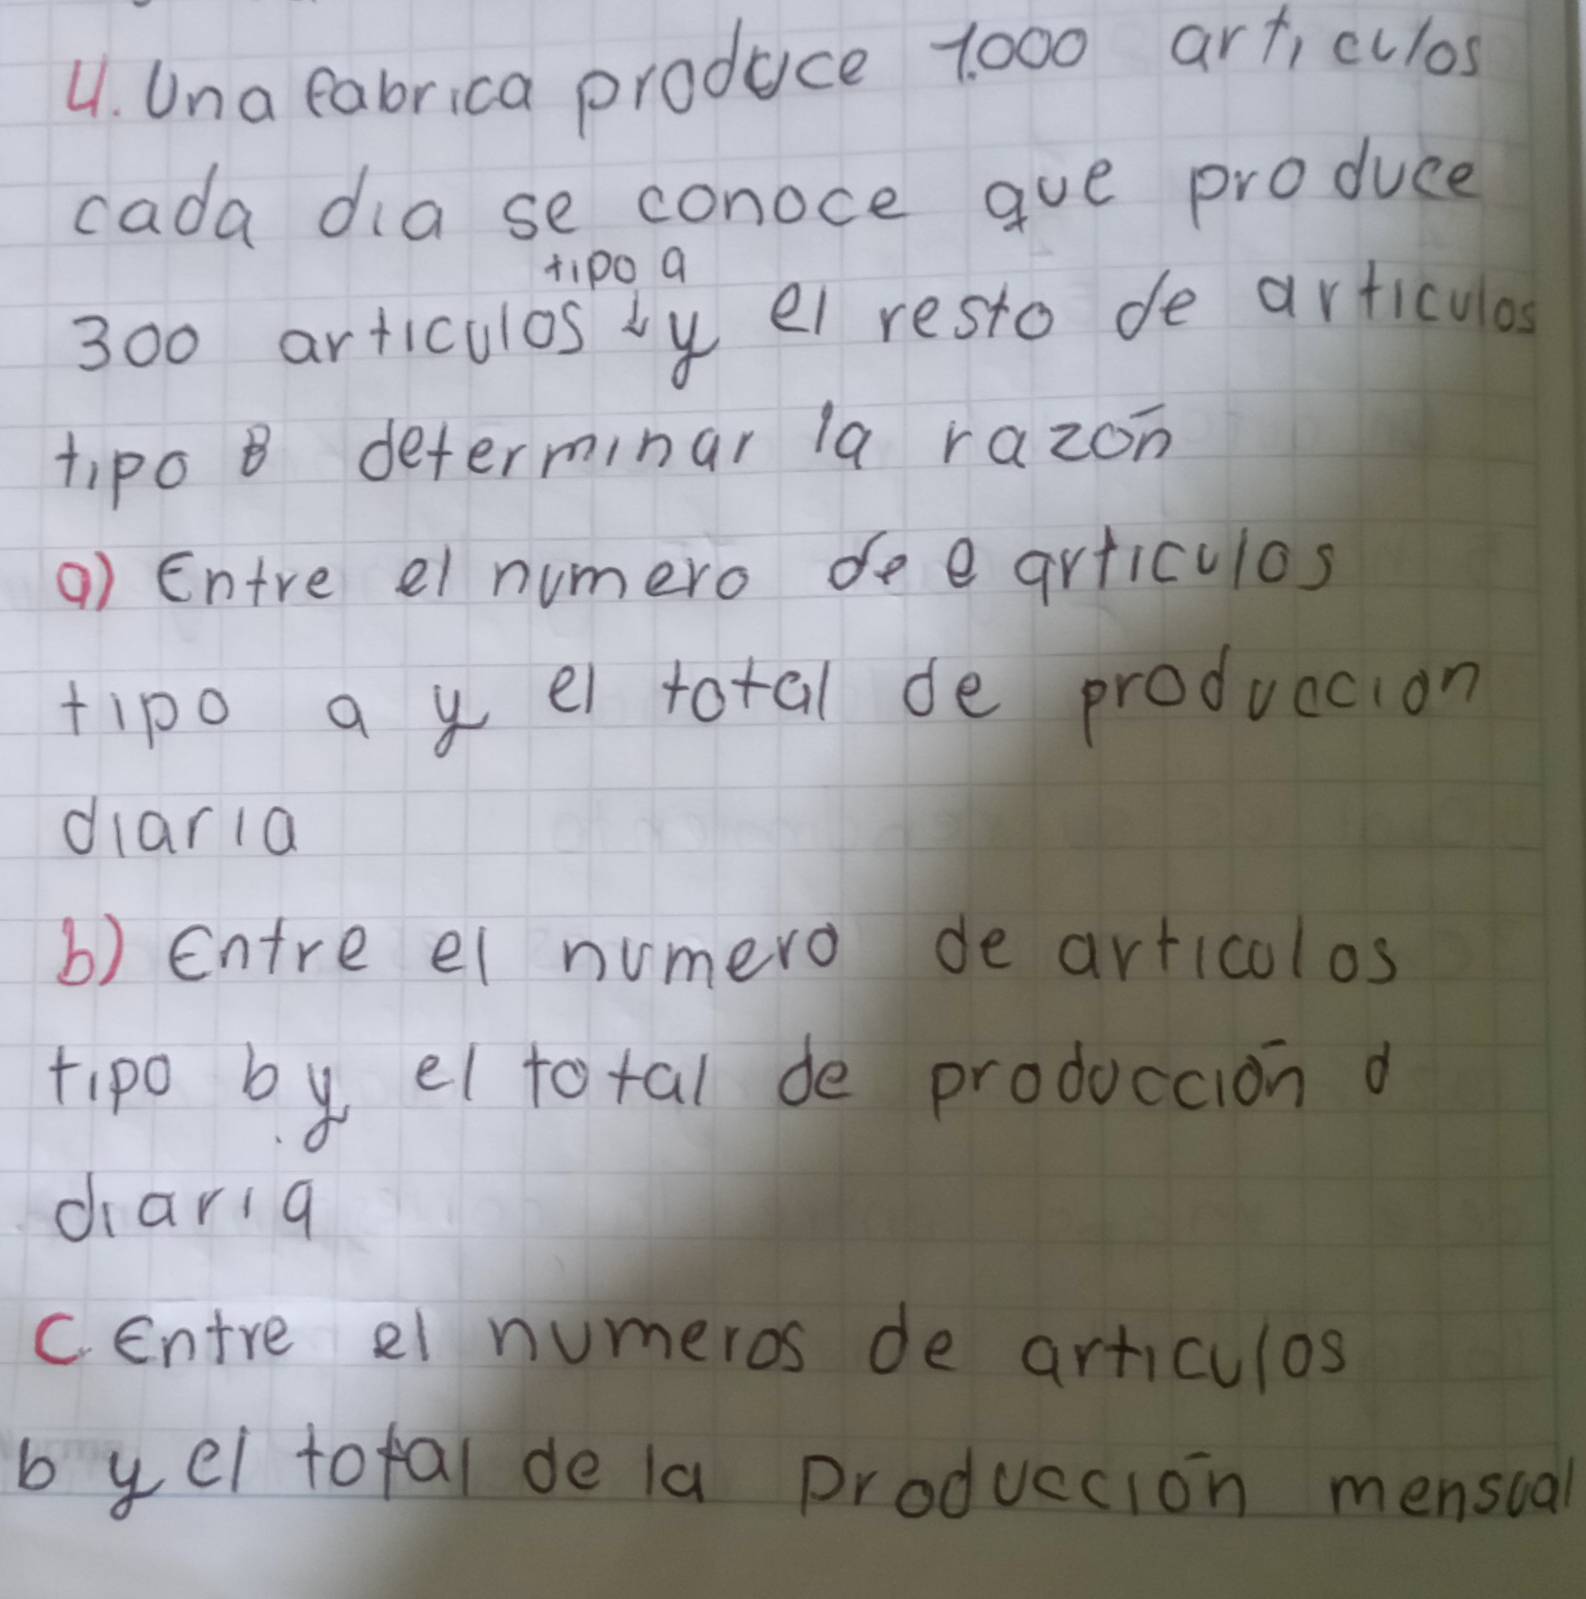 4. Una fabrica produce 1.000 articulos
cada dia se conoce que produce
tipo a
300 articulos ↓ y el resto de articulos
tipo B determinar la razón
a) Entre el numero de e articulos
tipo a y el total de produccion
diaria
b) Entre el numero de articulos
tipo b y el total de producción d
diaria
C. Entre el numeros de articulos
b y el total de la Producción mensual